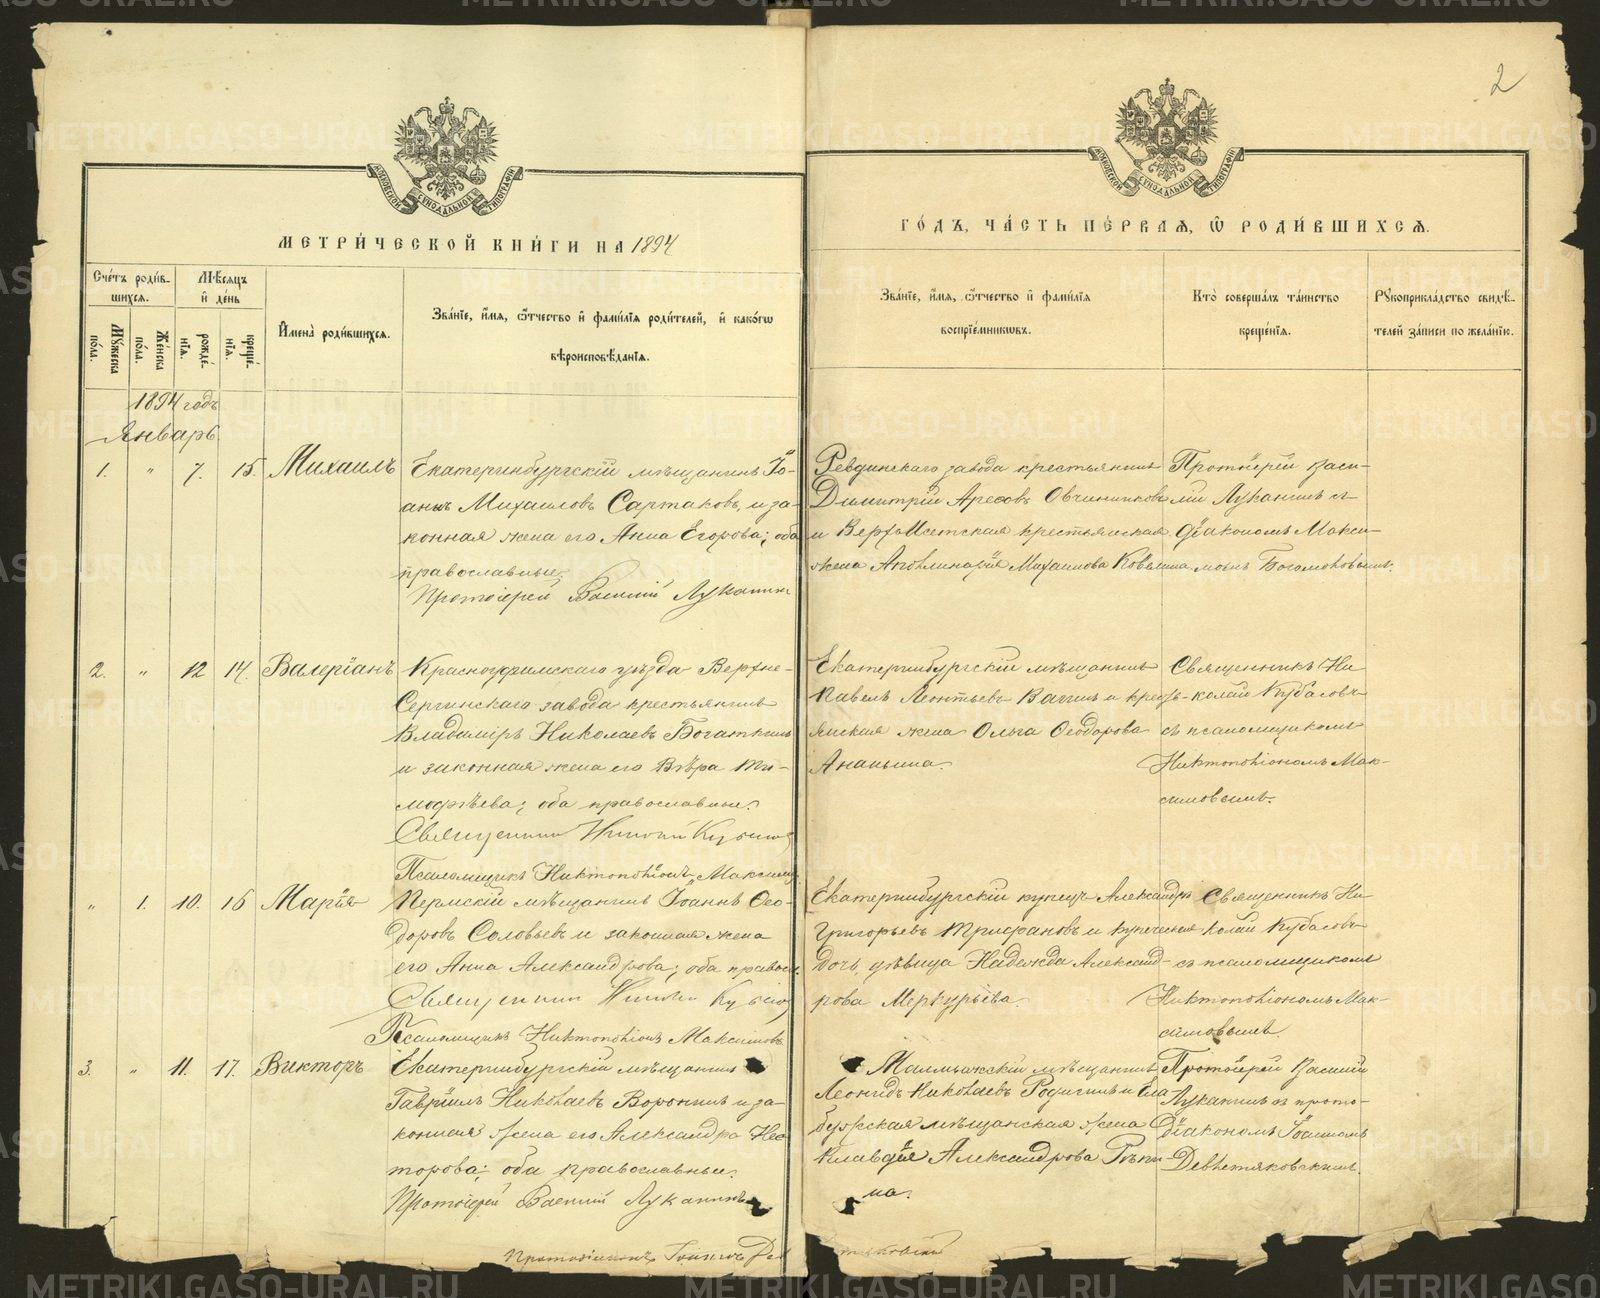 2
МОСКОВСКОЙ СѴНОДАЛЬНОЙ ТИПОГРАФІИ
МОСКОВСКОЙ СѴНОДАЛЬНОЙ ТИПОГРАФІИ
МЕТРИ́ЧЕСКОЙ КНИ́ГИ НА 1894
ГО́ДЪ, ЧА́СТЬ ПЕ́РВАЯ, Ѽ РОДИ́ВШИХСЯ.
Сче́тъ роди́вшихся.
Мꙋ́жеска по́ла.
Же́нска по́ла.
Мѣ́сяцъ и҆ де́нь
рожде́нїѧ.
креще́нїѧ.
И҆мена̀ роди́вшихся.
Зва́нїе, и҆́мя, ѻ҆́тчество и҆ фами́лїя роди́телей, и҆ како́гѡ
вѣроисповѣ́данїѧ.
Зва́нїе, и҆́мя, ѻ҆́тчество и҆ фами́лїя
воспрїе́мникѡвъ.
Кто̀ соверша́лъ та́инство
креще́нїѧ.
Рꙋкоприкла́дство свидѣ́-
телей за́писи по жела́нїю.
1894 годъ
Январь
1. " 7. 15. Михаилъ
Екатеринбургскій мѣщанинъ Іо-
аннъ Михаиловъ Сартаковъ, и за-
конная жена его Анна Егорова; оба
православные.
Протоіерей Василій Луканинъ
Ревдинскаго завода крестьянинъ
Димитрій Аресовъ Овчинниковъ
и Верхъ-Исетская крестьянская
жена Апполинарія Михаилова Ковылина
Протоіерей Васи-
лій Луканинъ съ
діакономъ Макси-
момъ Богомоловымъ.
2. " 12 14. Валеріанъ
Красноуфимскаго уѣзда Верхне-
Сергинскаго завода крестьянинъ
Владиміръ Николаевъ Богаткинъ
и законная жена его Вѣра Ти-
мофѣева; оба православные.
Священникъ Николай
Псаломщикъ Никтополіонъ Максимов
Екатеринбургскій мѣщанинъ
Павелъ Леонтьевъ Вагинъ и кресть-
янская жена Ольга Ѳеодорова
Ананьина.
Священникъ Ни-
колай Кубасовъ
съ псаломщикомъ
Никтополіономъ Мак-
симовымъ.
" 1. 10. 16 Марія
Пермскій мѣщанинъ Іоаннъ Ѳео-
доровъ Соловьевъ и законная жена
его Анна Александрова; оба правосл.
Священникъ Николай
Псаломщикъ Никтополіонъ Максимовъ
Екатеринбургскій купецъ Александръ
Григорьевъ Трифановъ и купеческая
дочь, дѣвица Надежда Александ-
рова Меркурьева.
Священникъ Ни-
колай Кубасовъ
съ псаломщикомъ
Никтополіономъ Мак-
симовымъ
3. " 11. 17. Викторъ
Екатеринбургскій мѣщанинъ
Гавріилъ Николаевъ Воронинъ и за-
конная жена его Александра Нес-
торова; оба православные.
Протоіерей Василій Луканинъ
Протодіаконъ Іоаннъ Дев
Малмыжскій мѣщанинъ
Леонидъ Николаевъ Родигинъ и Ела-
бужская мѣщанская жена
Клавдія Александрова Рѣпи-
на.
Протоіерей Василій
Луканинъ съ прото-
діакономъ Іоанномъ
Девлетяковскимъ.